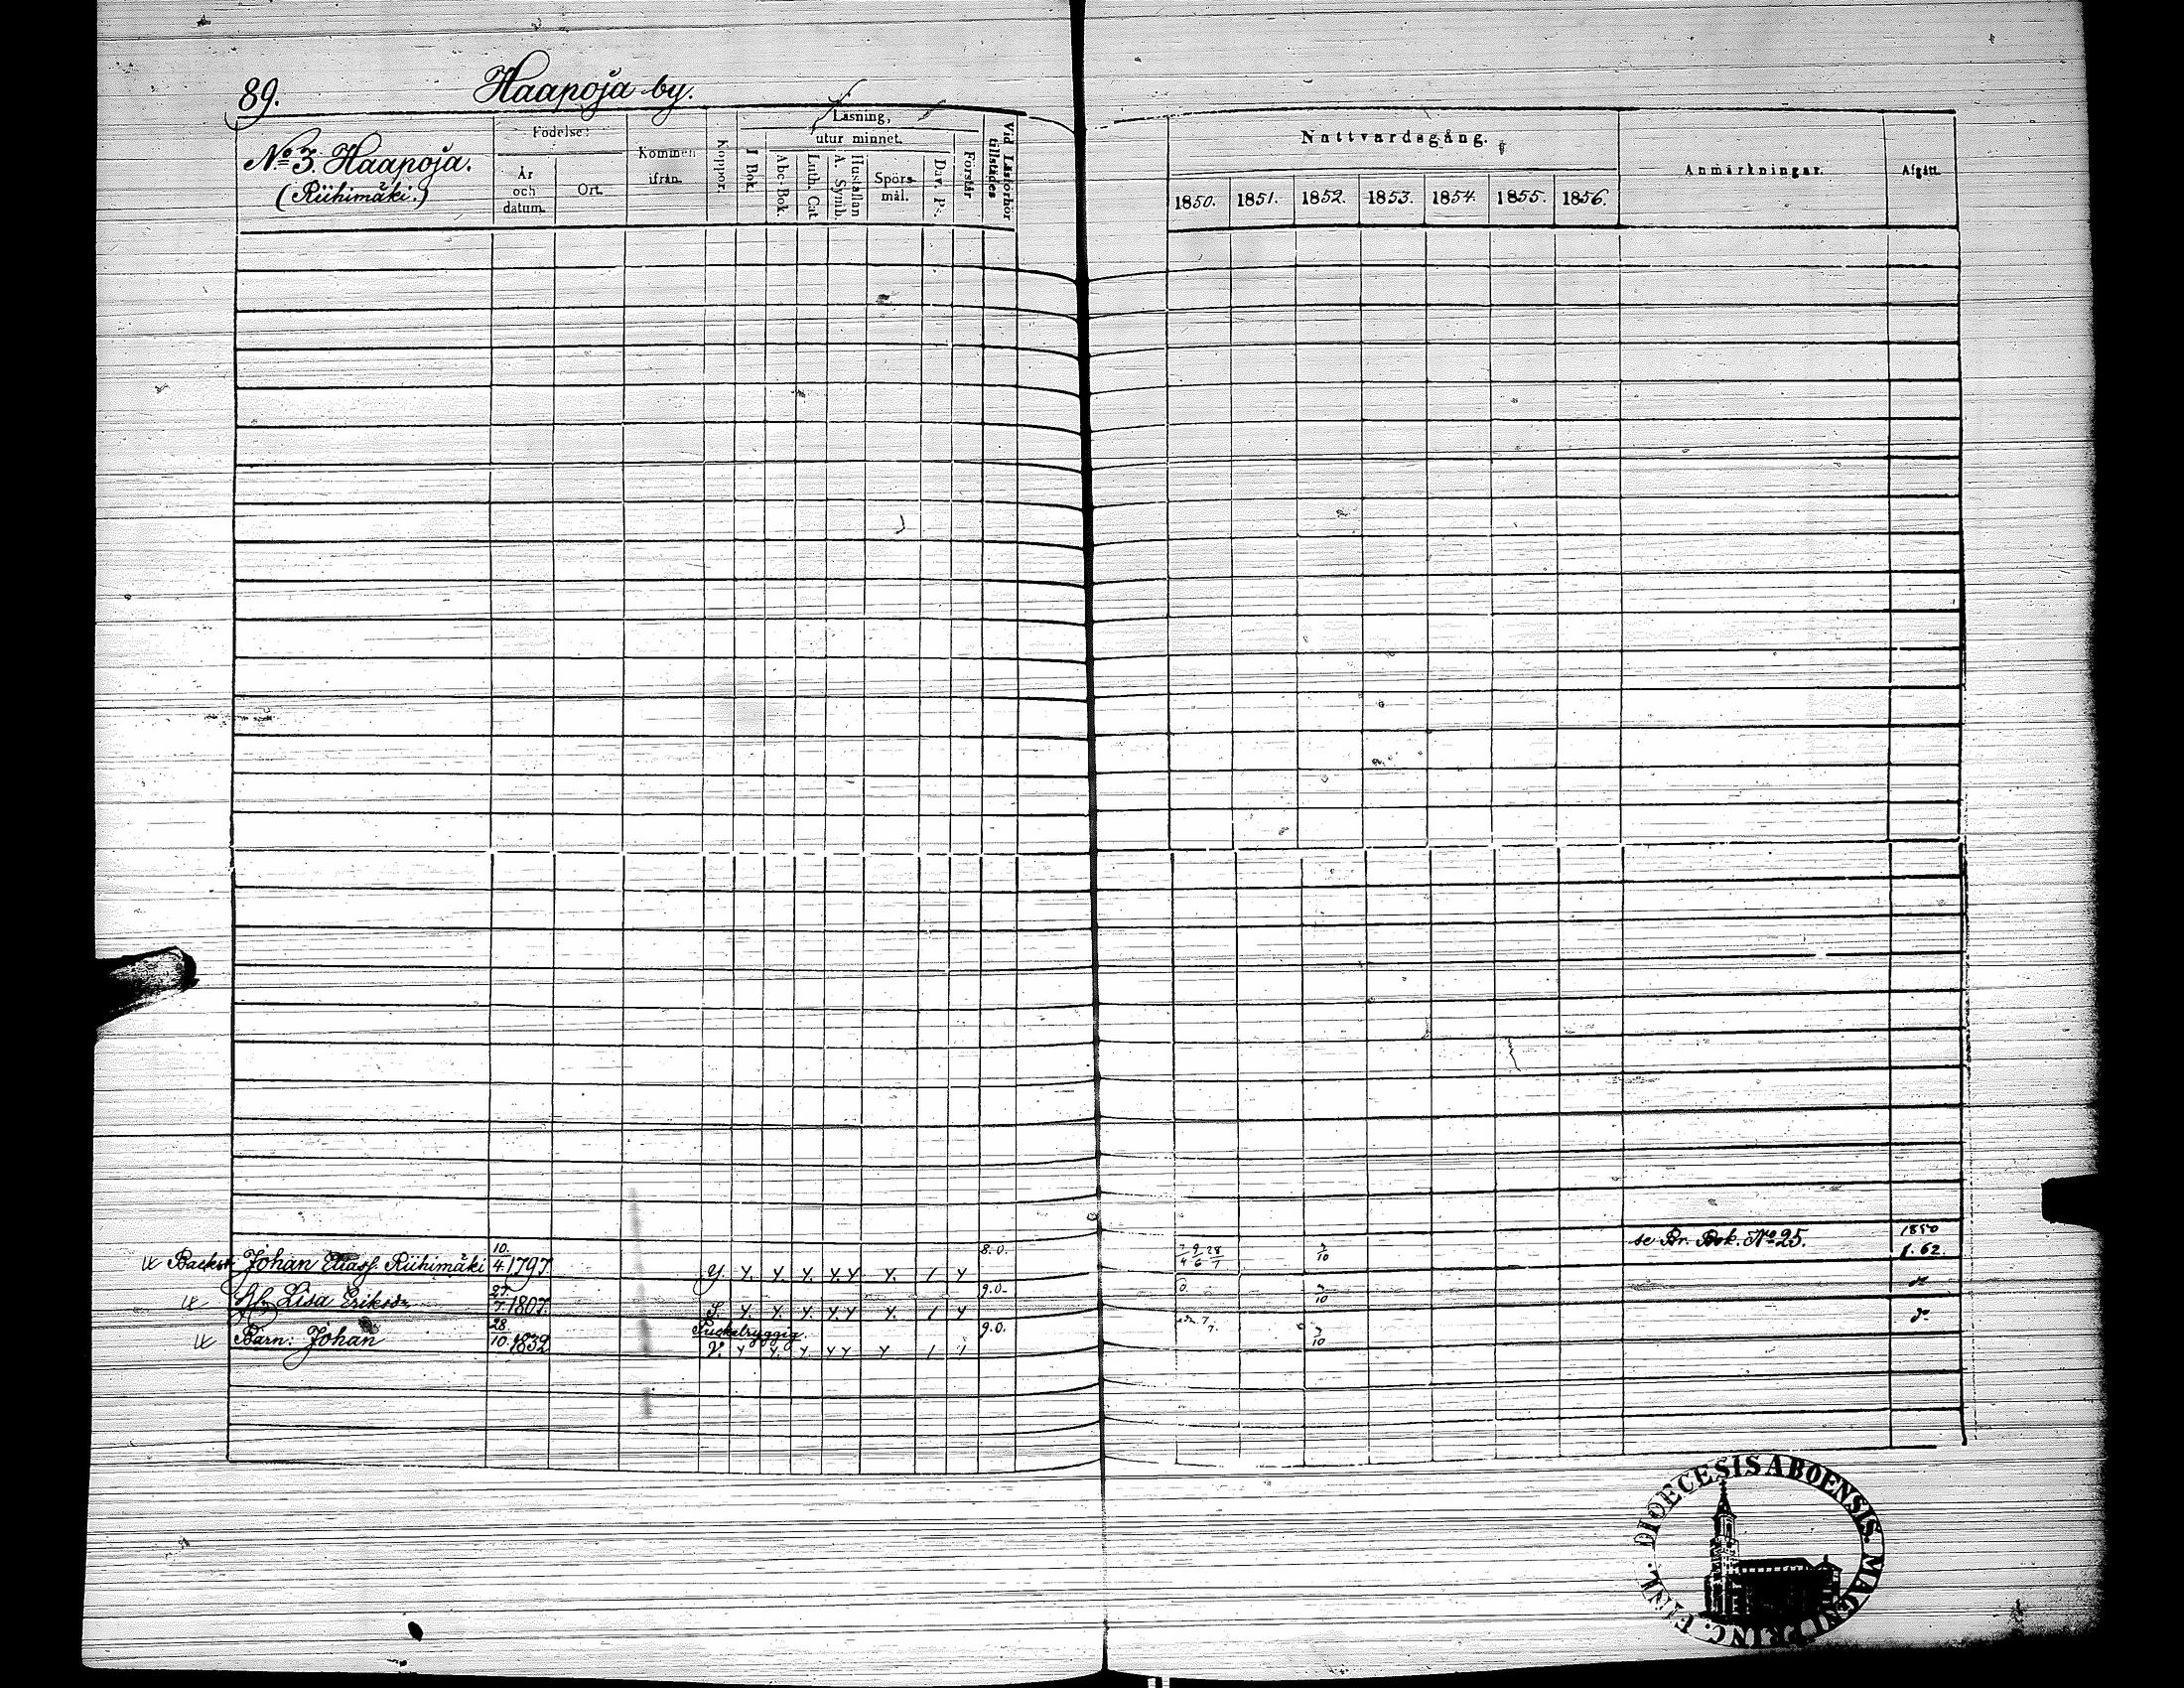 89. Haapoja by.
No 3. Haapoja.
(Riihimäki.)
Födelse:
År och datum.
Ort.
Kommen ifrån.
Koppor.
Läsning,
I Bok.
utur minnet.
Abc-Bok.
Luth. Cat
Hustaflan A. Symb.
Spörs-mål.
Dav. Ps.
Förstår
Vid Läsförhör tillstädes
Nattvardsgång.
1850. 1851. 1852. 1853. 1854. 1855. 1856.
Anmärkningar.
Afgått.
se Br. Bok. No 25. 1850
Backst. Johan Eliass. Riihimäki 10. 4. 1797 y. y. y. y. y. y y. 1 y 8.0. 7/4 9/6 28/7 3/10 f. 62
H. Lisa Eriksdr 27. 7. 1807. S. y. y. y. y. y y. 1 y 9.0. 0. 3/10 do
Puckelryggig.
Barn: Johan 28. 10. 1832 V. y y. y. y y y 1 1 9.0. 3/10 do
DIOECESIS ABOENSIS. MAGNI PRINC. FINL.